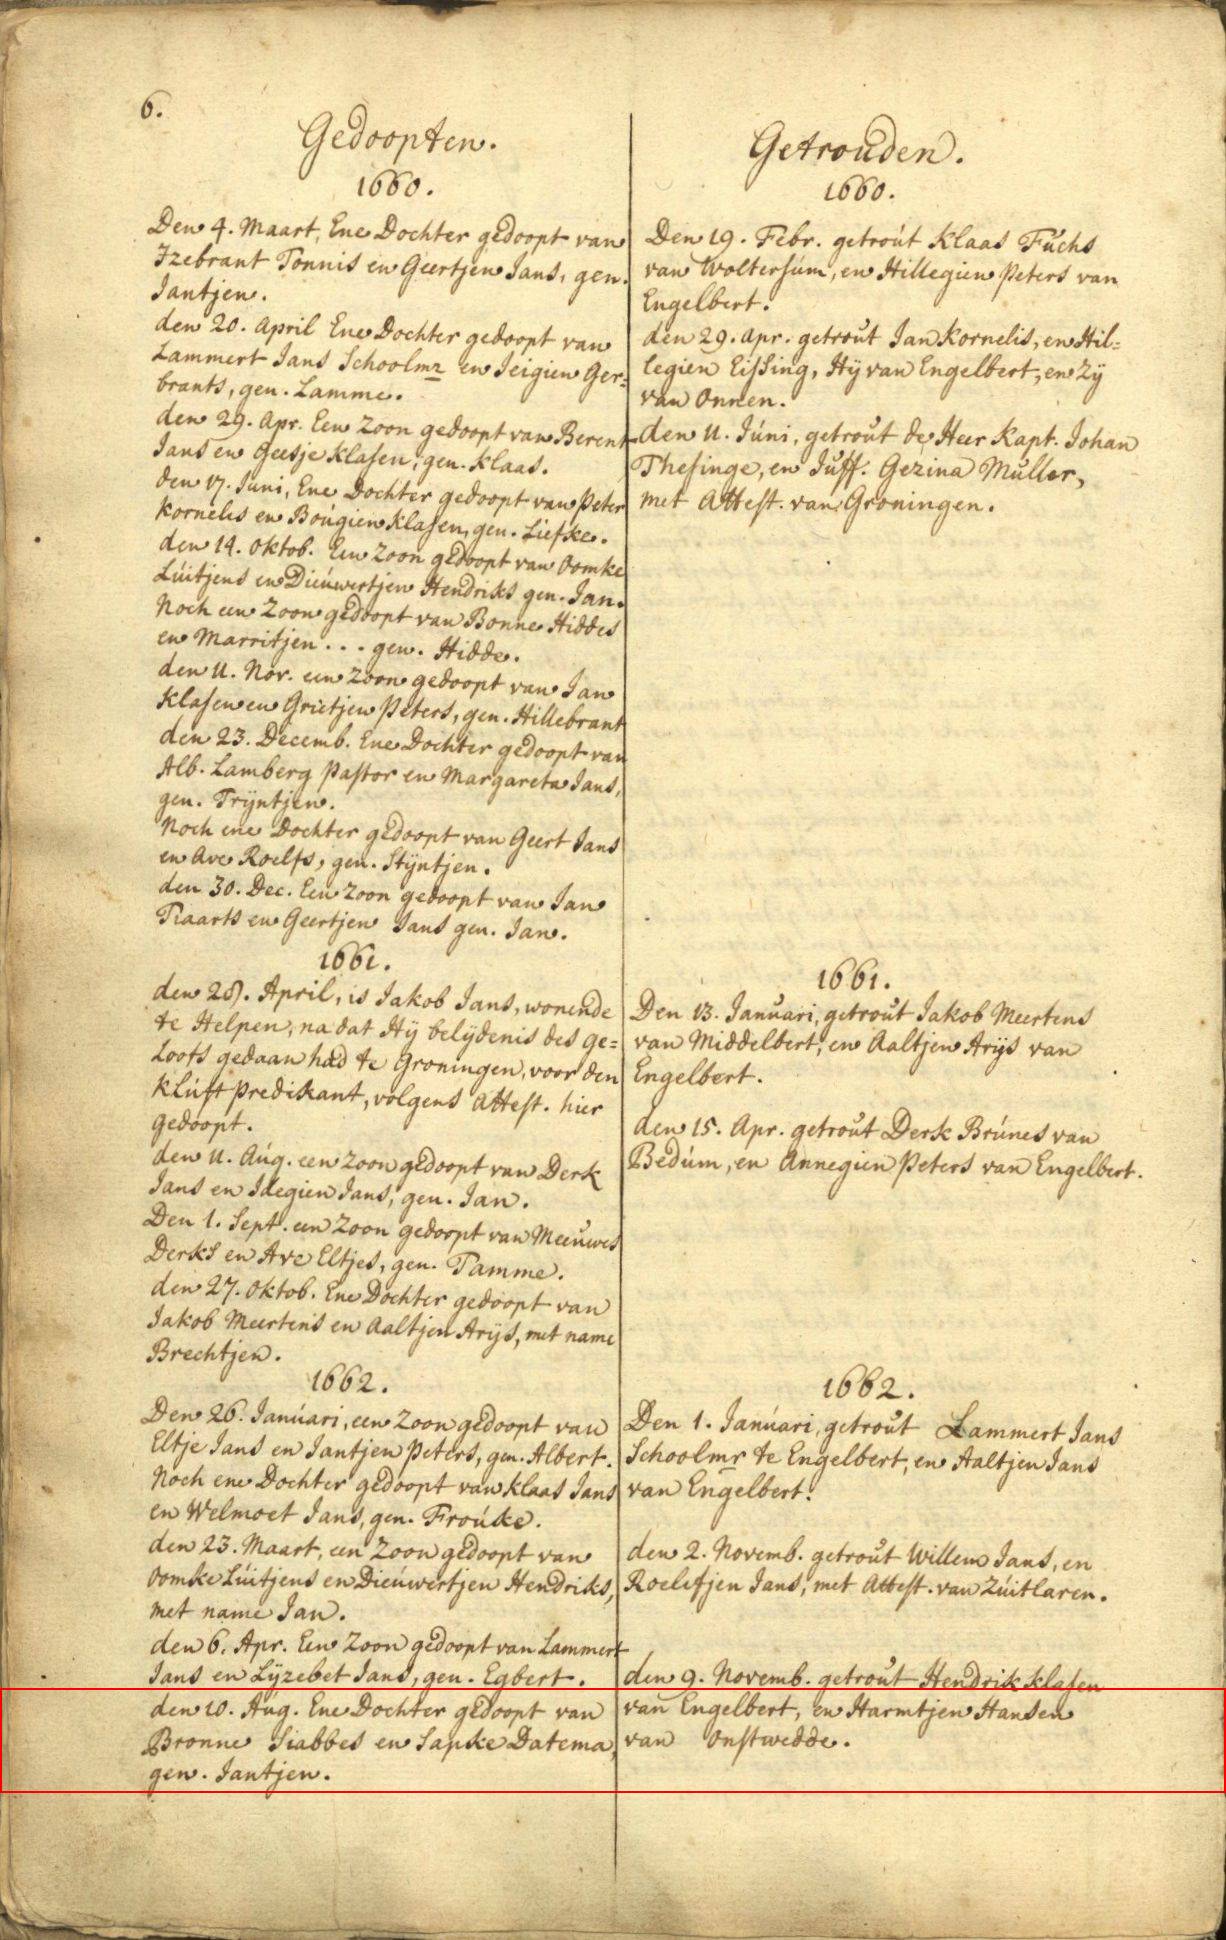 6.
Gedoopten.
1660.
Den 4. Maart, Ene Dochter gedoopt van
Izebrant Tonnis en Geertjen Jans, gen.
Jantjen.
den 20. April Ene Dochter gedoopt van
Lammert Jans Schoolmr en Jeigien Ger=
brants, gen. Lamme.
den 29. Apr. Een Zoon gedoopt van Berent
Jans en Geesje Klasen, gen. Klaas.
den 17. Juni, Ene Dochter gedoopt van Peter
Kornelis en Boúgien Klasen, gen. Liefke.
den 14. Oktob. Een Zoon gedoopt van Oomke
Lúitjens en Dieúwertjen Hendriks gen. Jan.
Noch een Zoon gedoopt van Bonne Hiddes
en Marritjen . . . gen. Hidde.
den 11. Nov. een Zoon gedoopt van Jan
Klasen en Grietjen Peters, gen. Hillebrant
den 23. Decemb. Ene Dochter gedoopt van
Alb. Lamberg Pastor en Margareta Jans,
gen. Trÿntjen.
Noch ene Dochter gedoopt van Geert Jans
en Ave Roelfs, gen. Stÿntjen.
den 30. Dec. Een Zoon gedoopt van Jan
Tiaarts en Geertjen Jans gen. Jan.
1661.
den 28. April, is Jakob Jans, wonende
te Helpen, na dat Hÿ belÿdenis des ge=
loofs gedaan had te Groningen, voor den
Klúft Predikant, volgens Attest. hier
gedoopt.
den 11. Aúg. een Zoon gedoopt van Derk
Jans en Idegien Jans, gen. Jan.
Den 1. Sept. een Zoon gedoopt van Meeúwes
Derks en Ave Eltjes, gen. Tamme.
den 27. Oktob. Ene Dochter gedoopt van
Jakob Meertens en Aaltjen Arÿs, met name
Brechtjen.
1662.
Den 26. Janúari, een Zoon gedoopt van
Eltje Jans en Jantjen Peters, gen. Albert.
Noch ene Dochter gedoopt van Klaas Jans
en Welmoet Jans, gen. Froúke.
den 23. Maart, een Zoon gedoopt van
Oomke Lúitjens en Dieúwertjen Hendriks,
met name Jan.
den 6. Apr. Een Zoon gedoopt van Lammert
Jans en Lÿzebet Jans, gen. Egbert.
den 10. Aúg. Ene Dochter gedoopt van
Bronne Siabbes en Sapke Datema,
gen. Jantjen.
Getrouden.
1660.
Den 19. Febr. getroút Klaas Fúchs
van Woltersúm, en Hillegien Peters van
Engelbert.
den 29. Apr. getroút Jan Kornelis, en Hil=
legien Eissing, Hÿ van Engelbert, en Zÿ
van Onnen.
den 11. Júni, getroút de Heer Kapt. Johan
Thesinge, en Júff. Gezina Muller,
met Attest. van Groningen.
1661.
Den 13. Januari, getroút Jakob Meertens
van Middelbert, en Aaltjen Arÿs van
Engelbert.
den 15. Apr. getroút Derk Brúnes van
Bedúm, en Annegien Peters van Engelbert.
1662.
Den 1. Janúari, getroút Lammert Jans
Schoolmr te Engelbert, en Aaltjen Jans
van Engelbert.
den 2. Novemb. getroút Willem Jans, en
Roelefjen Jans, met Attest. van Zúitlaren.
den 9. Novemb. getroút Hendrik Klasen
van Engelbert, en Harmtjen Hansen
van Onstwedde.